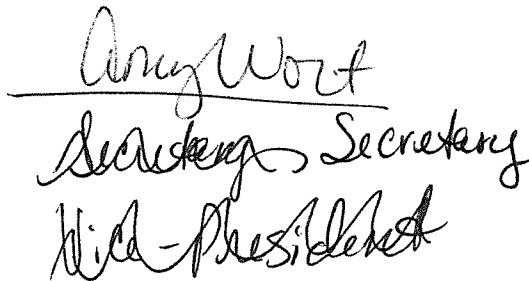 Amy Wort
Secretary, Secretary
Vice-President